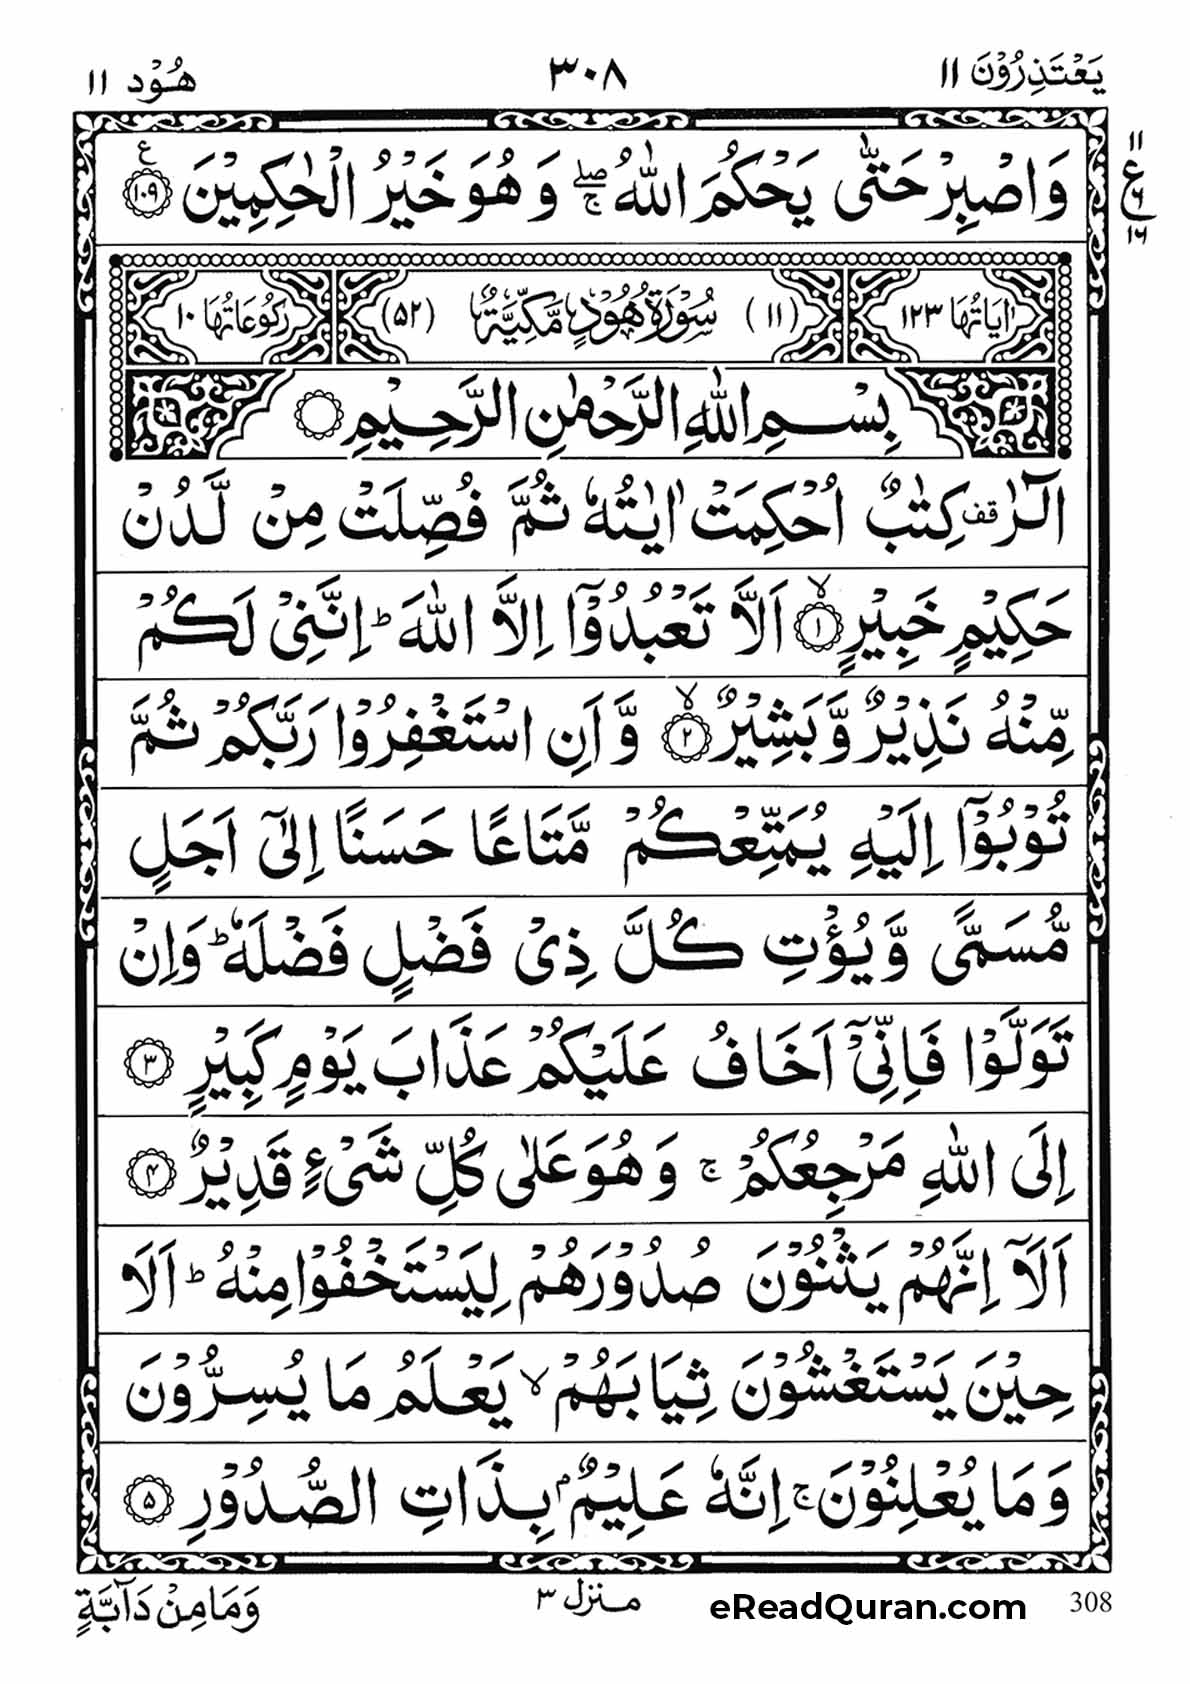 يَعْتَذِرُوْنَ ۱۱ ۳۰۸ هُوْد ۱۱
وَاصْبِرْ حَتّٰى يَحْكُمَ اللّٰهُ ۚۖ وَهُوَ خَيْرُ الْحٰكِمِيْنَ ﴿۱۰۹﴾ ع
۱۱
ع
۹
۱۶
اٰيَاتُهَا ۱۲۳ (۱۱) سُوْرَةُ هُوْدٍ مَّكِّيَّةٌ (۵۲) رُكُوْعَاتُهَا ۱۰
بِسْمِ اللّٰهِ الرَّحْمٰنِ الرَّحِيْمِ ۝
الٓرٰ قف كِتٰبٌ اُحْكِمَتْ اٰيٰتُهٗ ثُمَّ فُصِّلَتْ مِنْ لَّدُنْ
حَكِيْمٍ خَبِيْرٍ ﴿۱﴾ۙ اَلَّا تَعْبُدُوْۤا اِلَّا اللّٰهَ ؕ اِنَّنِىْ لَكُمْ
مِّنْهُ نَذِيْرٌ وَّبَشِيْرٌ ﴿۲﴾ۙ وَّاَنِ اسْتَغْفِرُوْا رَبَّكُمْ ثُمَّ
تُوْبُوْۤا اِلَيْهِ يُمَتِّعْكُمْ مَّتَاعًا حَسَنًا اِلٰٓى اَجَلٍ
مُّسَمًّى وَّيُؤْتِ كُلَّ ذِىْ فَضْلٍ فَضْلَهٗ ؕ وَاِنْ
تَوَلَّوْا فَاِنِّىْۤ اَخَافُ عَلَيْكُمْ عَذَابَ يَوْمٍ كَبِيْرٍ ﴿۳﴾
اِلَى اللّٰهِ مَرْجِعُكُمْ ۚ وَهُوَ عَلٰى كُلِّ شَىْءٍ قَدِيْرٌ ﴿۴﴾
اَلَاۤ اِنَّهُمْ يَثْنُوْنَ صُدُوْرَهُمْ لِيَسْتَخْفُوْا مِنْهُ ؕ اَلَا
حِيْنَ يَسْتَغْشُوْنَ ثِيَابَهُمْ ۙ يَعْلَمُ مَا يُسِرُّوْنَ
وَمَا يُعْلِنُوْنَ ۚ اِنَّهٗ عَلِيْمٌۢ بِذَاتِ الصُّدُوْرِ ﴿۵﴾
308 eReadQuran.com منزل ۳ وَمَا مِنْ دَآبَّةٍ